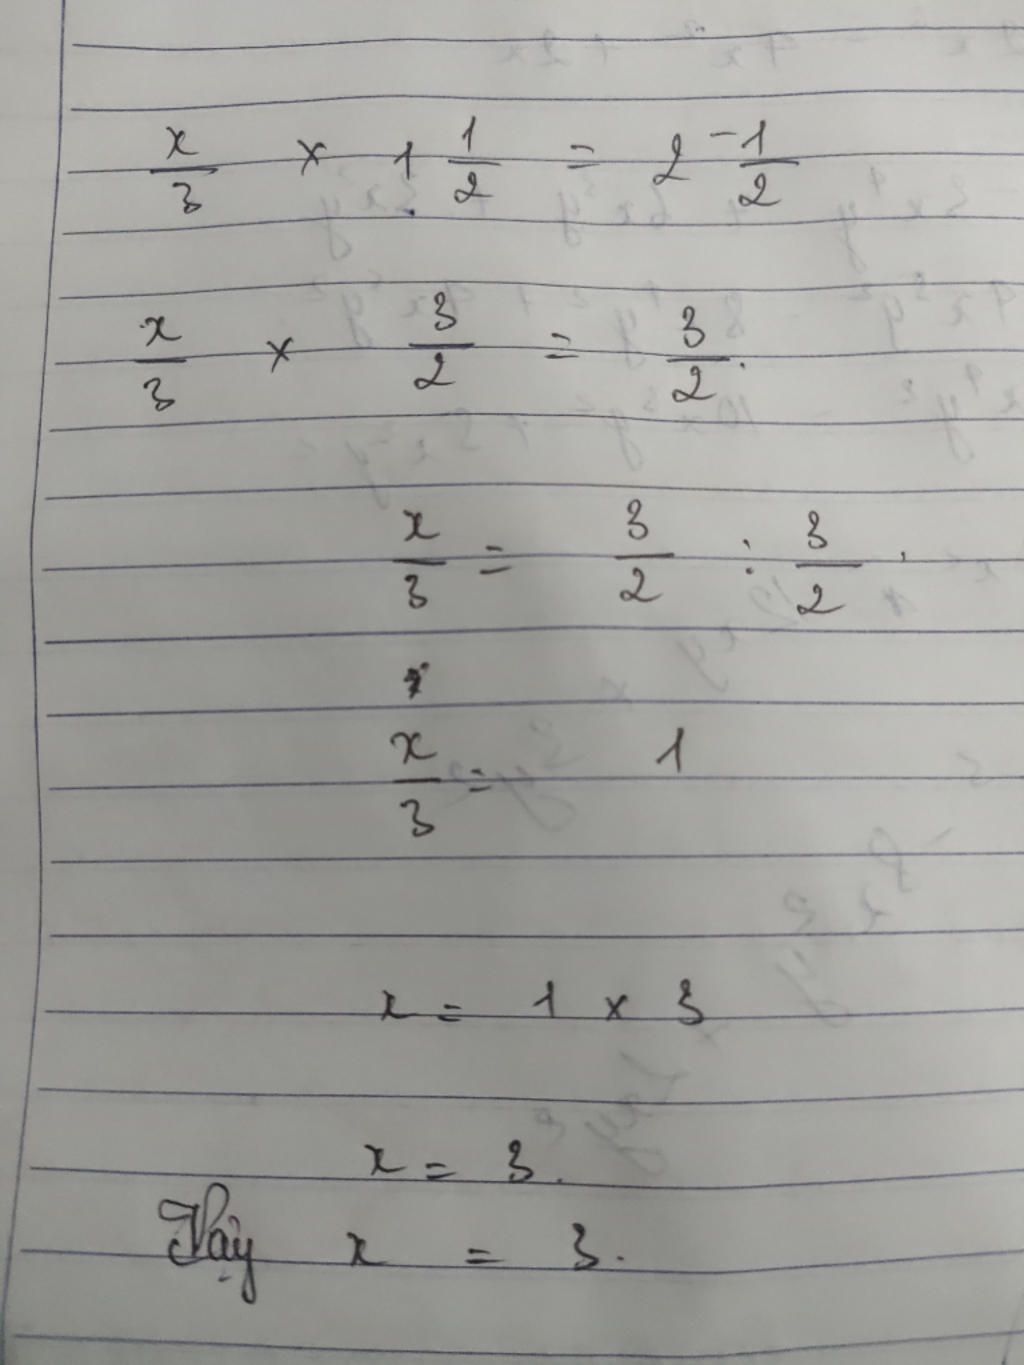 x/3 × 1 1/2 = 2 -1/2
x/3 × 3/2 = 3/2.
x/3 = 3/2 : 3/2.
x/3 = 1
x = 1 × 3
x = 3.
Vậy x = 3.